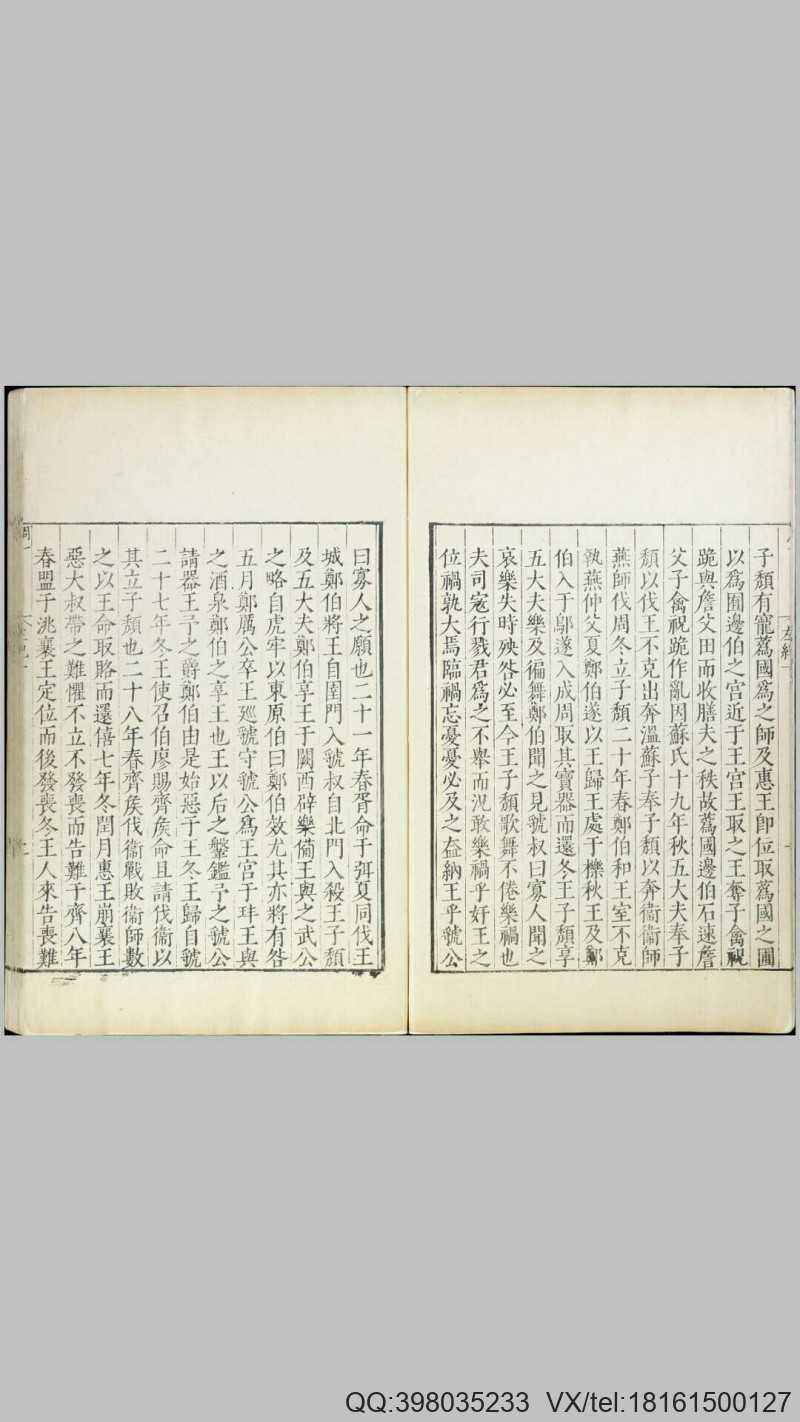 子頹有寵蔿國爲之師及惠王卽位取蔿國之圃
以爲囿邊伯之宮近于王宮王取之王奪子禽祝
跪與詹父田而收膳夫之秩故蔿國邊伯石速詹
父子禽祝跪作亂因蘇氏十九年秋五大夫奉子
頹以伐王不克出奔溫蘇子奉子頹以奔衞衞師
燕師伐周冬立子頹二十年春鄭伯和王室不克
執燕仲父夏鄭伯遂以王歸王處于櫟秋王及鄭
伯入于鄔遂入成周取其寶器而還冬王子頹享
五大夫樂及徧舞鄭伯聞之見虢叔曰寡人聞之
哀樂失時殃咎必至今王子頹歌舞不倦樂禍也
夫司寇行戮君爲之不舉而況敢樂禍乎奸王之
位禍孰大焉臨禍忘憂憂必及之盍納王乎虢公
曰寡人之願也二十一年春胥命于弭夏同伐王
城鄭伯將王自圉門入虢叔自北門入殺王子頹
及五大夫鄭伯享王于闕西辟樂備王與之武公
之略自虎牢以東原伯曰鄭伯效尤其亦將有咎
五月鄭厲公卒王廵虢守虢公爲王宮于玤王與
之酒泉鄭伯之享王也王以后之鞶鑑予之虢公
請器王予之爵鄭伯由是始惡于王冬王歸自虢
二十七年冬王使召伯廖賜齊矦命且請伐衞以
其立子頹也二十八年春齊矦伐衞戰敗衞師數
之以王命取賂而還僖七年冬閏月惠王崩襄王
惡大叔帶之難懼不立不發喪而告難于齊八年
春盟于洮襄王定位而後發喪冬王人來告喪難
QQ:398035233 VX/tel:18161500127